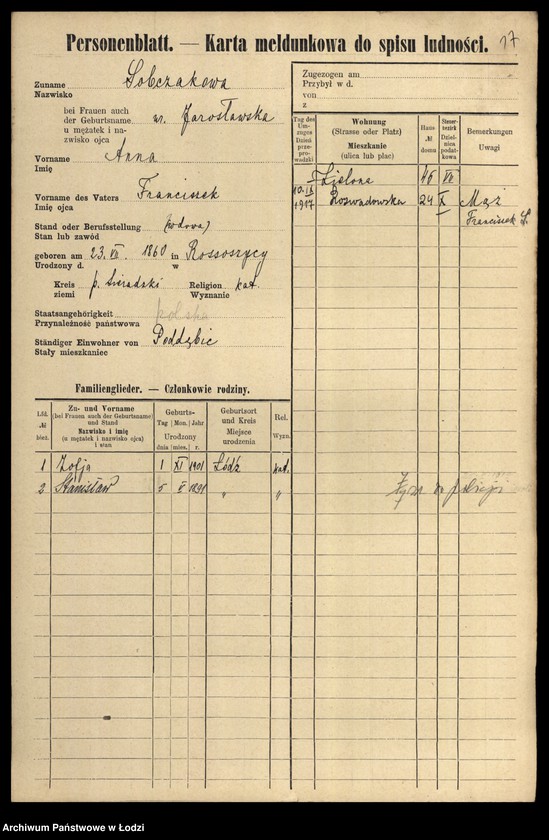 Personenblatt. — Karta meldunkowa do spisu ludności. 17
Zuname Sobczakowa
Nazwisko
bei Frauen auch
der Geburtsname ur. Jarosławska
u mężatek i na-
zwisko ojca
Vorname Anna
Imię
Vorname des Vaters Franciszek
Imię ojca
Stand oder Berufsstellung (wdowa)
Stan lub zawód
geboren am 23. VII. 1860 in Rossoszycy
Urodzony d. w
Kreis p. Sieradzki Religion kat.
ziemi Wyznanie
Staatsangehörigkeit polska
Przynależność państwowa
Ständiger Einwohner von Poddębic
Stały mieszkaniec
Zugezogen am
Przybył w d.
von
z
Tag des Um-zuges Dzień prze-pro-wadzki
Wohnung (Strasse oder Platz) Mieszkanie (ulica lub plac)
Haus № domu
Steuer-bezirk Dziel-nica podat-kowa
Bemerkungen Uwagi
Zielona 46 VII
10. IX 1917 Rozwadowska 24 X Mąż
Franciszek S.
Familienglieder. — Członkowie rodziny.
Lfd. № bież.
Zu- und Vorname
(bei Frauen auch der Geburtsname)
und Stand
Nazwisko i imię
(u mężatek i nazwisko ojca)
i stan
Geburts- Tag Mon. Jahr
Urodzony
dnia mies. r.
Geburtsort
und Kreis
Miejsce
urodzenia
Rel.
Wyzn.
1 Zofja 1 XI 1901 Łódź kat.
2 Stanisław 5 V 1891 " "
Archiwum Państwowe w Łodzi